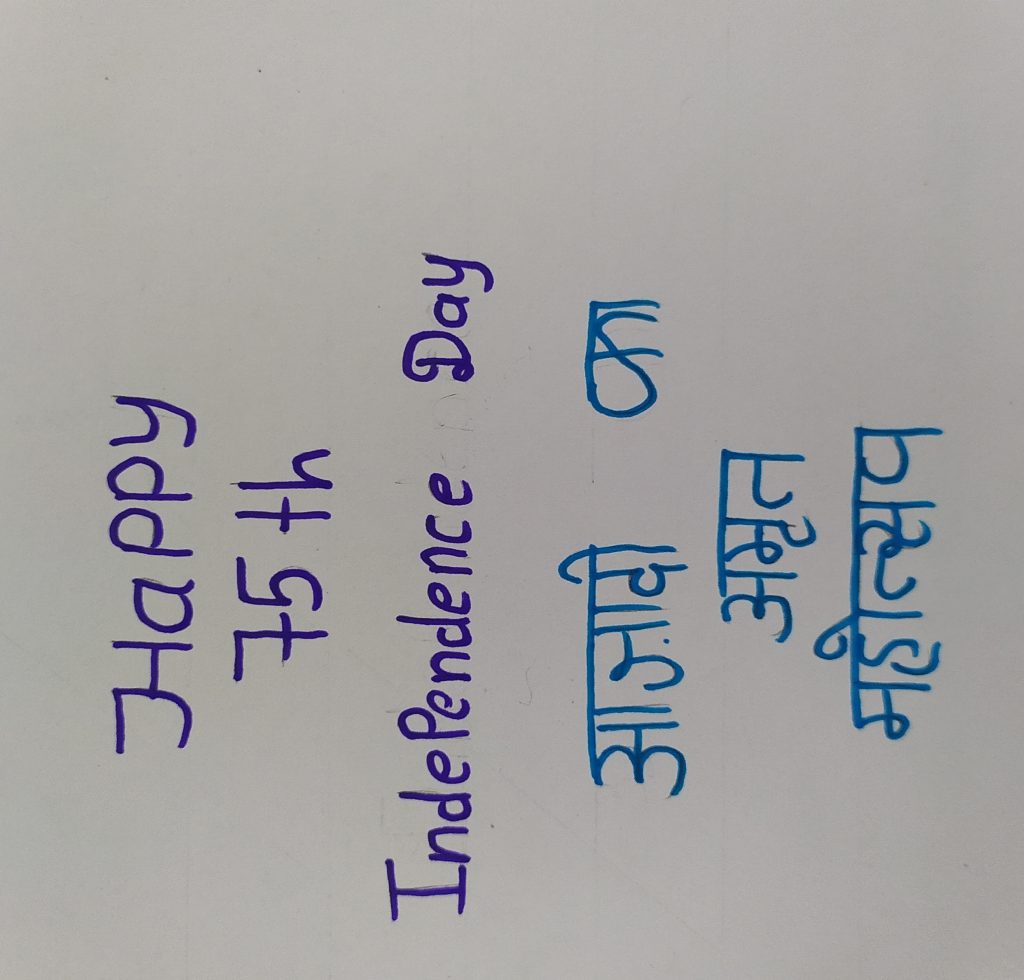 Happy
75th
IndePendence Day
आज़ादी का
अमृत
महोत्सव